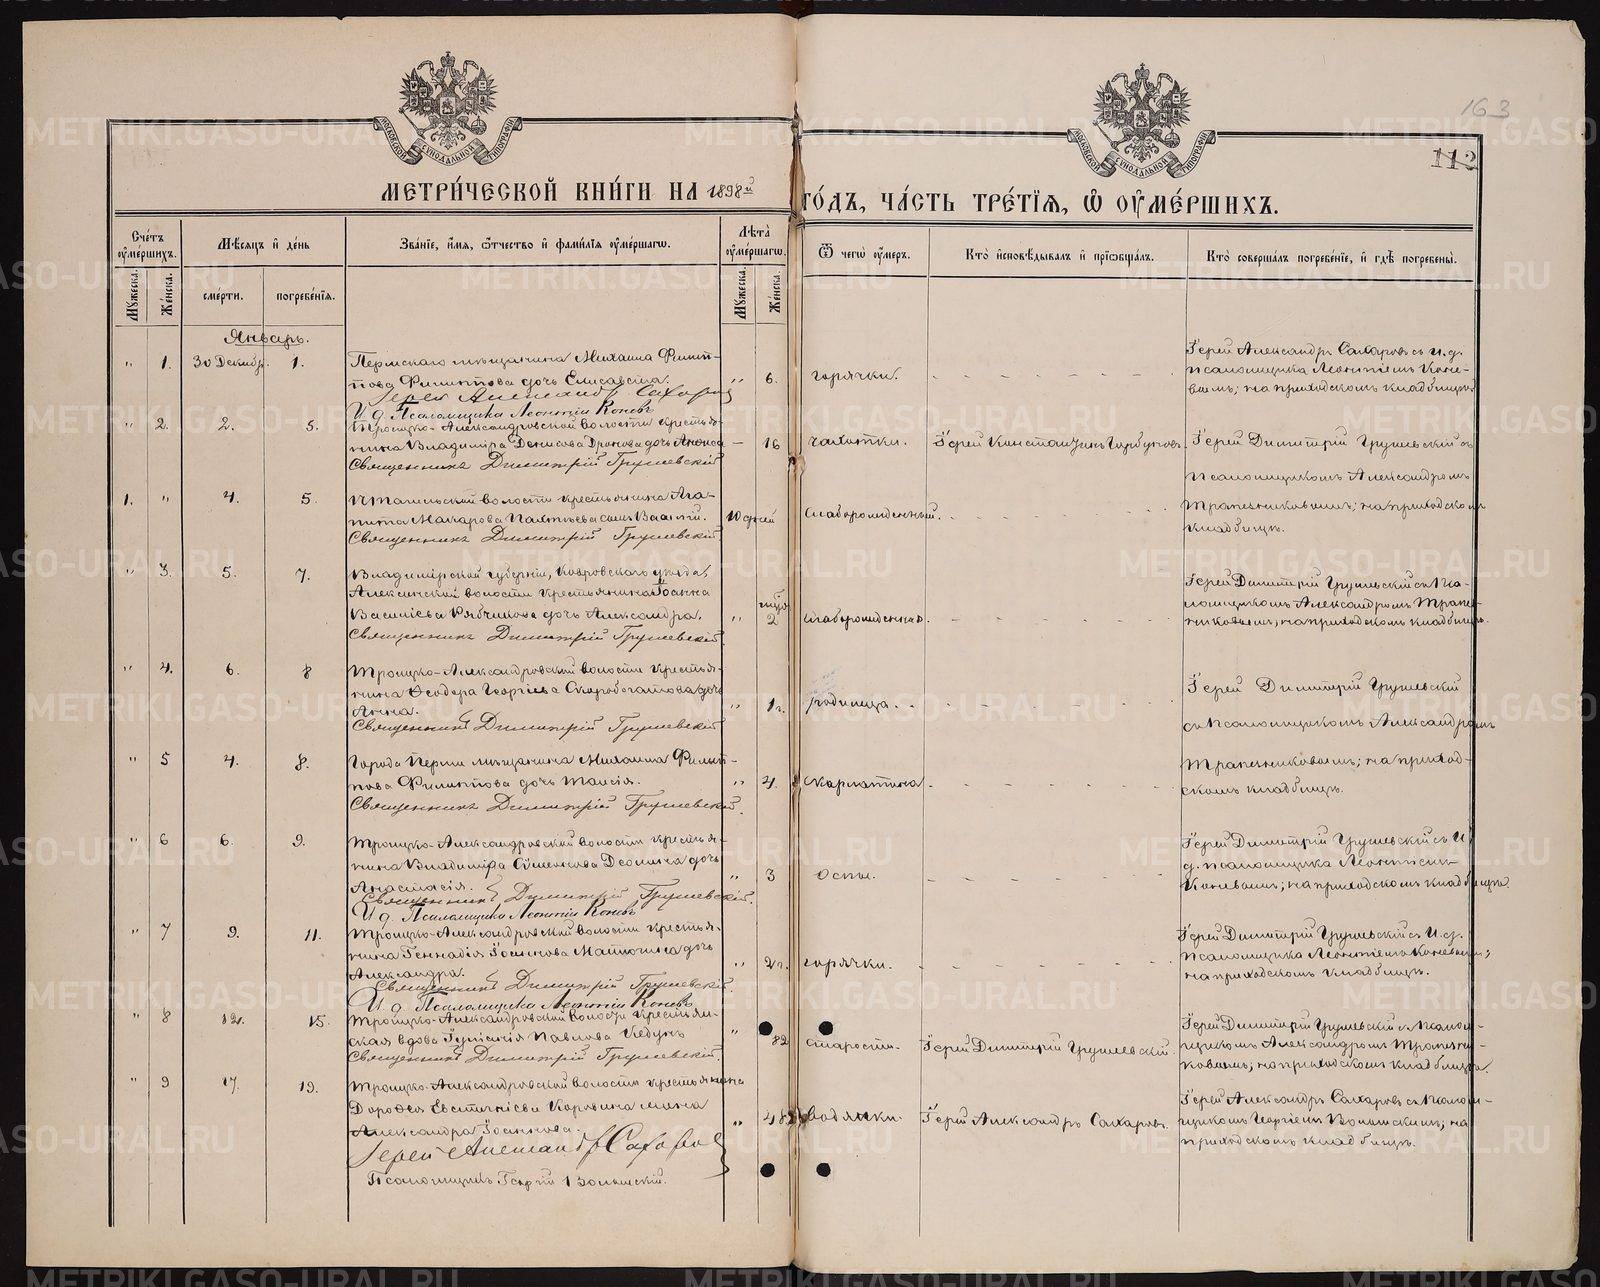 163
112
МОСКОВСКОЙ СУНОДАЛЬНОЙ ТИПОГРАФІИ
МОСКОВСКОЙ СУНОДАЛЬНОЙ ТИПОГРАФІИ
МЕТРИ́ЧЕСКОЙ КНИ́ГИ НА 1898й ГО́ДЪ, ЧА́СТЬ ТРЕ́ТІѦ, Ѿ ОУМЕ́РШИХЪ.
Сче́тъ оумершихъ.
Мужеска.
Же́нска.
Мѣ́сяцъ и де́нь
сме́рти.
погребе́нїя.
Зва́нїе, и́мя, ѻ́тчество и фами́лїя оуме́ршагѡ.
Лѣ́та оуме́ршагѡ.
Мужеска.
Же́нска.
Ѿ чегѡ̀ оу́меръ.
Кто̀ исповѣ́дывалъ и прїѡбща́лъ.
Кто̀ соверша́лъ погребе́нїе, и гдѣ̀ погребены̀.
Январь.
" 1. 30 Декабр. 1.
Пермскаго мѣщанина Михаила Филип-
пова Филиппова дочь Елисавета.
Іерей Александръ Сахаровъ
И. д. Псаломщика Леонтій Коневъ
" 6. горячки.
Іерей Александръ Сахаровъ съ И. д.
псаломщика Леонтіемъ Коне-
вымъ; на приходскомъ кладбищѣ
" 2. 2. 5.
Троицко-Александровской волости крестья-
нина Владиміра Денисова дочь
Священникъ Димитрій Грушевскій
— 16 чахотки. Іерей Константинъ Горбуновъ.
Іерей Димитрій Грушевскій съ
псаломщикомъ Александромъ
Трапезниковымъ; на приходскомъ
кладбищѣ.
1. " 4. 5.
волости крестьянина Ага-
пита Макарова сынъ Василій.
Священникъ Димитрій Грушевскій
10 дней слаборожденный.
" 3. 5. 7.
Владимірской губерніи, Ковровскаго уѣзда,
Алексинской волости крестьянина Іоанна
Васильева Рябчикова дочь Александра.
Священникъ Димитрій Грушевскій
" 2 слаборожденная.
Іерей Димитрій Грушевскій съ Пса-
ломщикомъ Александромъ Трапез-
никовымъ; на приходскомъ кладбищѣ.
" 4. 6. 8
Троицко-Александровской волости крестья-
нина Ѳеодора Георгіева Скоробогатова дочь
Анна.
Священникъ Димитрій Грушевскій
" 1 г. родимца.
Іерей Димитрій Грушевскій
съ Псаломщикомъ Александромъ
Трапезниковымъ; на приход-
скомъ кладбищѣ.
" 5 4. 8.
Города Перми мѣщанина Михаила Филип-
пова Филиппова дочь Таисія.
Священникъ Димитрій Грушевскій.
" 4. скарлатина.
" 6 6. 9.
Троицко-Александровской волости крестья-
нина Владиміра дочь
Анастасія.
Священникъ Димитрій Грушевскій.
И. д. Псаломщика Леонтій Коневъ
" 3 Оспы.
Іерей Димитрій Грушевскій съ И.
д. псаломщика Леонтіемъ
Коневымъ; на приходскомъ кладбищѣ.
" 7 9. 11.
Троицко-Александровской волости крестья-
нина Геннадія Іоаннова дочь
Александра.
Священникъ Димитрій Грушевскій.
И. д. Псаломщика Леонтій Коневъ
" 2 г. горячки.
Іерей Димитрій Грушевскій съ И. д.
псаломщика Леонтіемъ Коневымъ;
на приходскомъ кладбищѣ.
" 8 12. 15.
Троицко-Александровской волости крестьян-
ская вдова Павлова
Священникъ Димитрій Грушевскій.
" 82 старости. Іерей Димитрій Грушевскій.
Іерей Димитрій Грушевскій съ Псалом-
щикомъ Александромъ Трапезни-
ковымъ; на приходскомъ кладбищѣ.
" 9 17. 19.
Троицко-Александровской волости крестьянина
Дороѳея Евстигніева жена
Александра Іоаннова.
Іерей Александръ Сахаровъ
Псаломщикъ Георгій
" 48 водянки. Іерей Александръ Сахаровъ.
Іерей Александръ Сахаровъ съ Псалом-
щикомъ Георгіемъ на
приходскомъ кладбищѣ.
METRIKI.GASO-URAL.RU